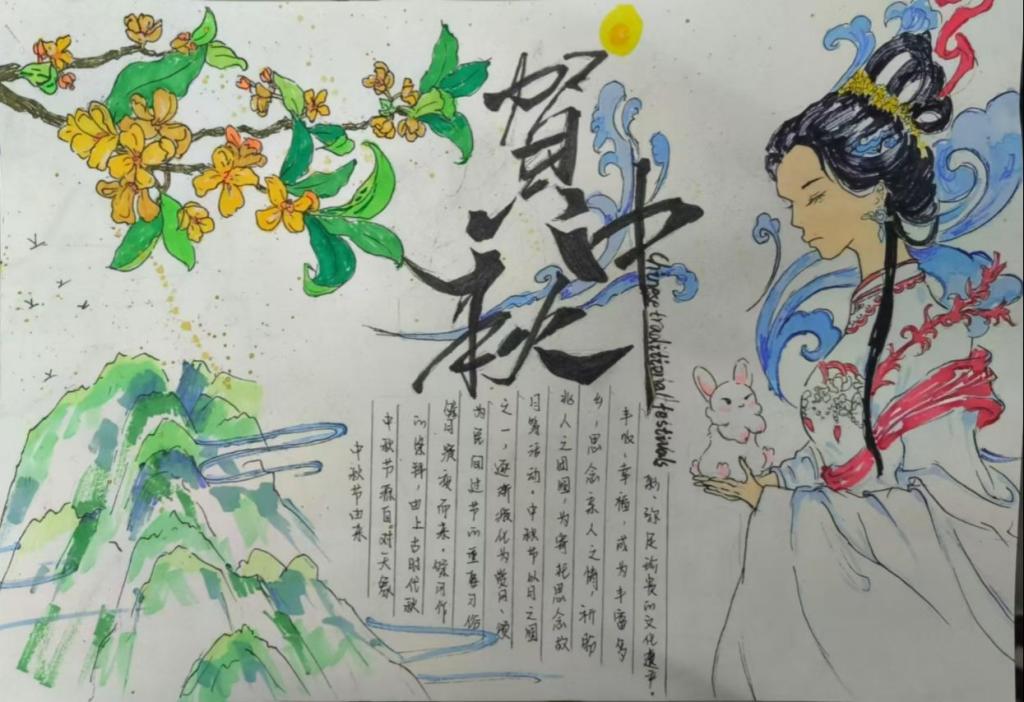 賀
中
秋
Chinese traditional festivals
中秋节由来
中秋节源自对天象
的崇拜，由上古时代秋
月演变而来。祭月作
为民间过节的重要习俗
之一，逐渐演化为赏月、颂
月等活动。中秋节以月之圆
兆人之团圆，为寄托思念故
乡，思念亲人之情，祈盼
丰收、幸福，成为丰富多
彩、弥足珍贵的文化遗产。